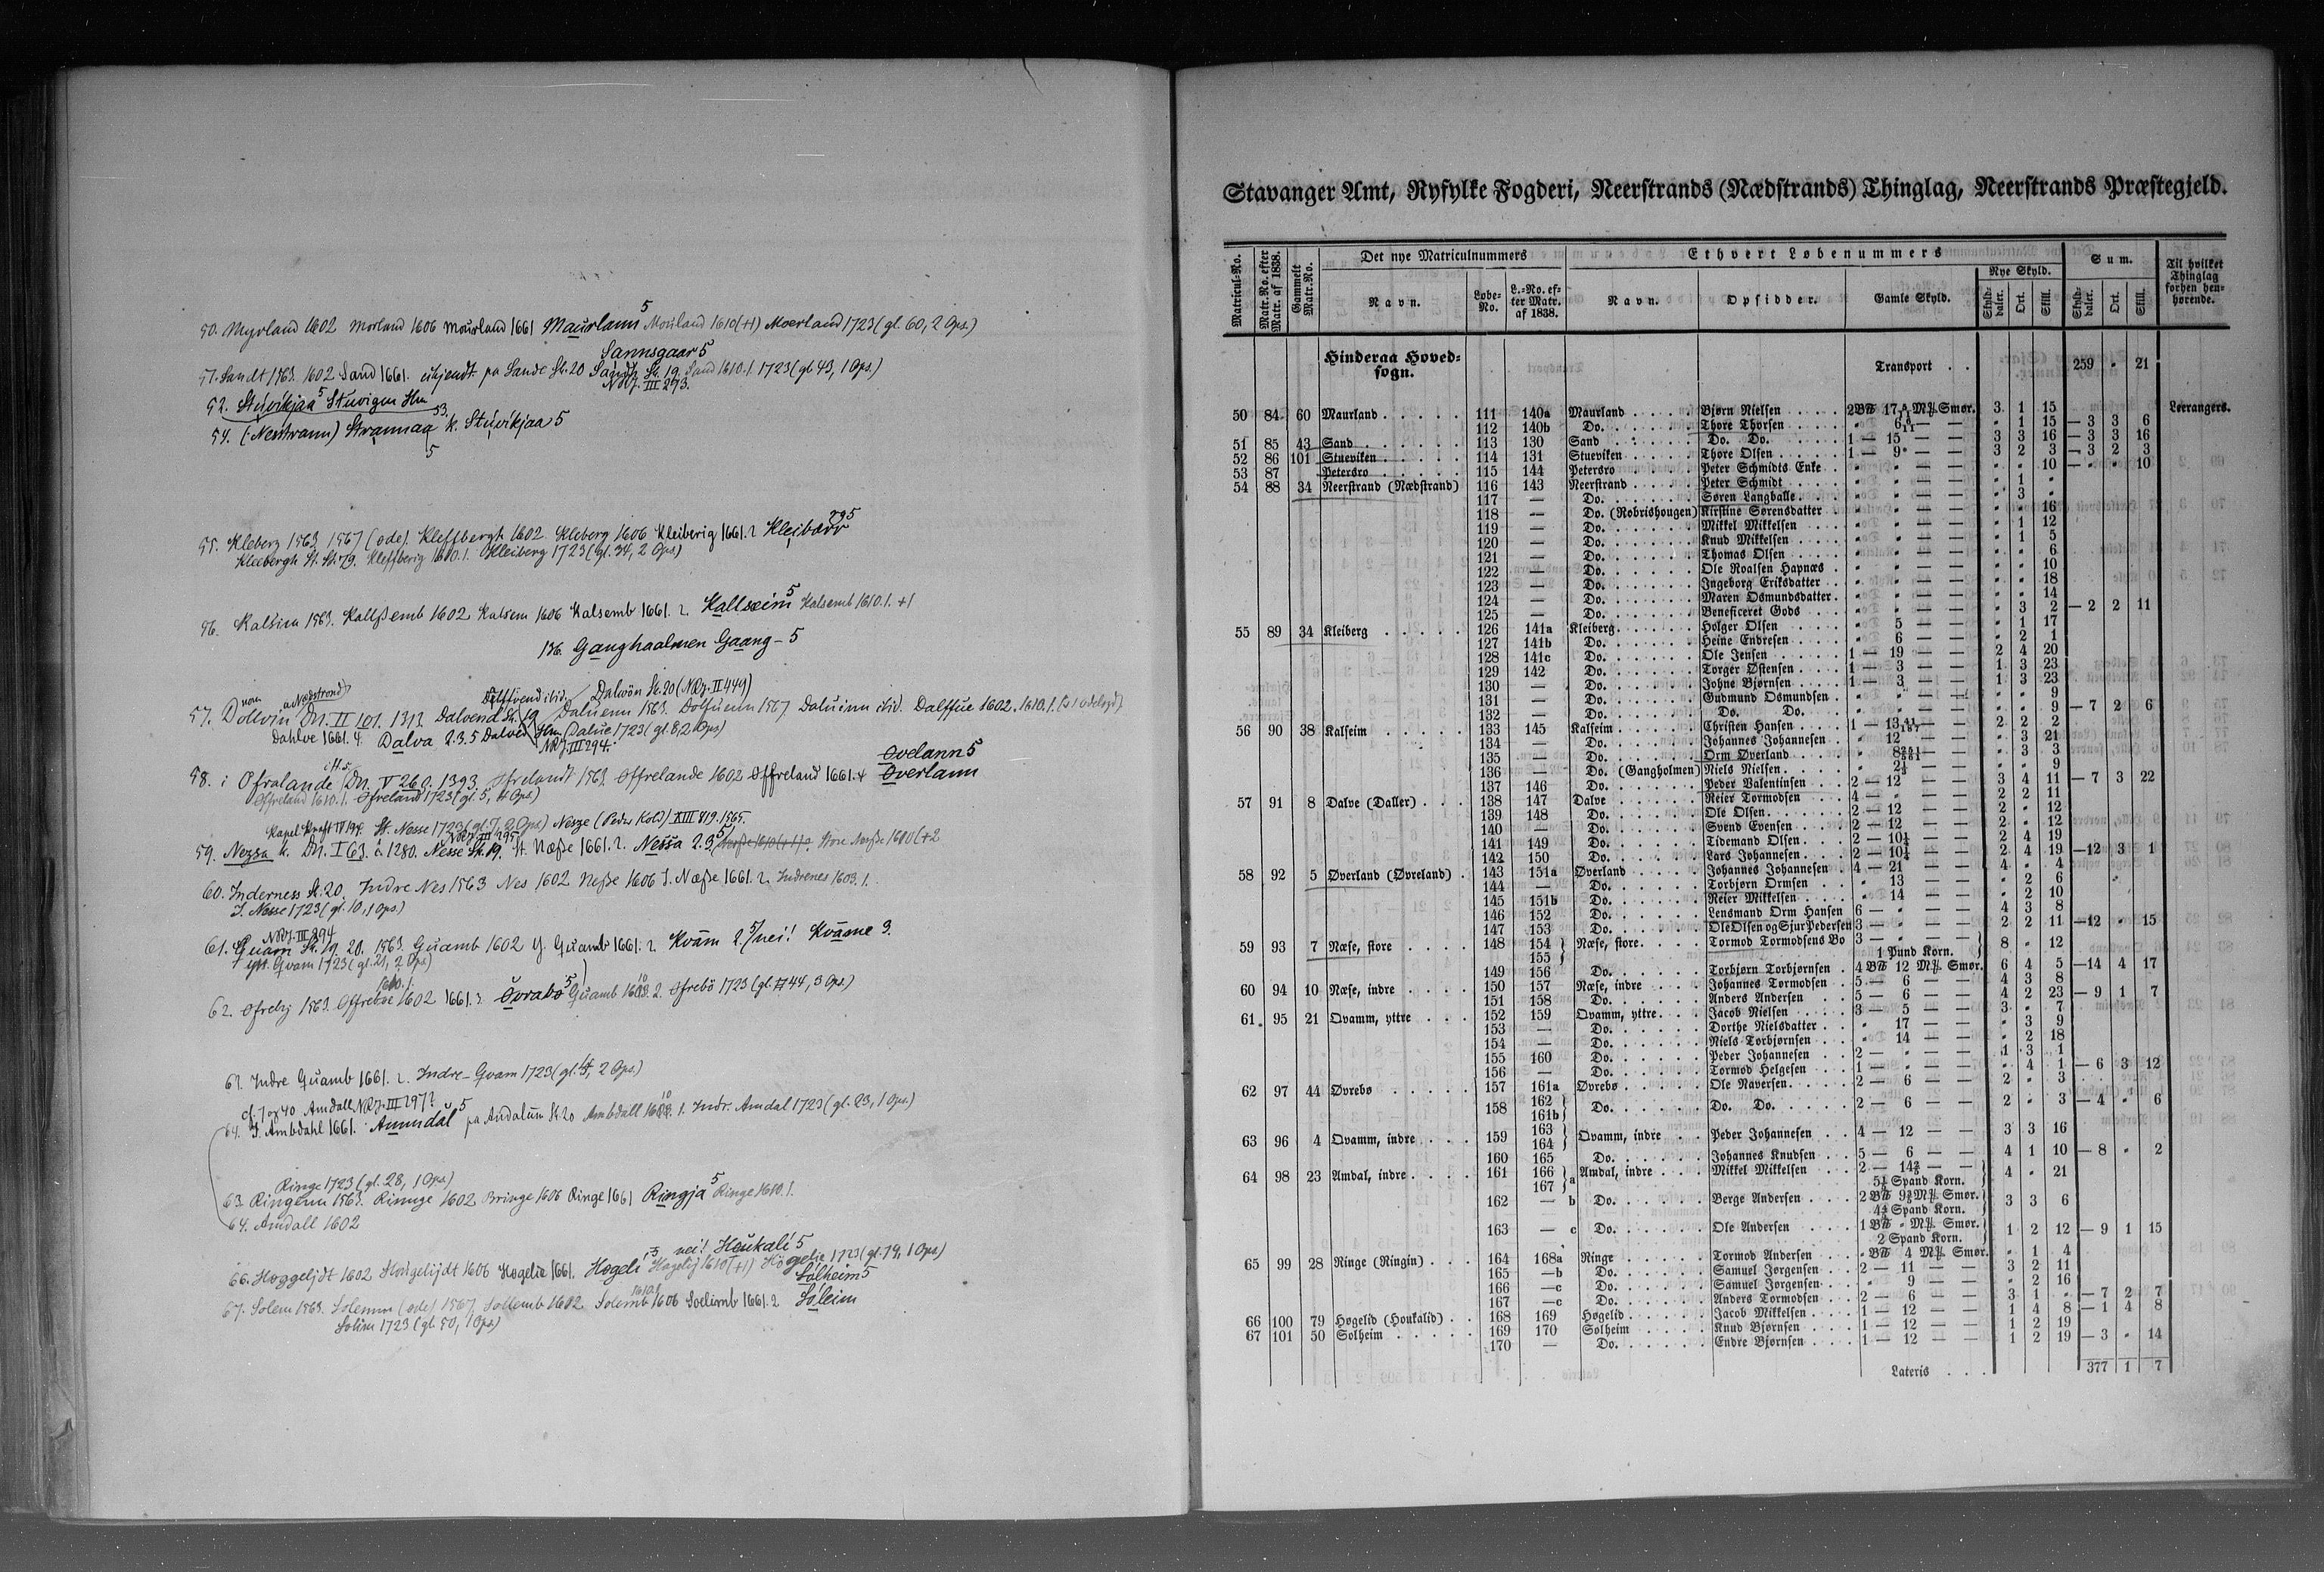 50. Myrland 1602 Morland 1606 Mourland 1661 Maurlann 5 Mouland 1610 (+1) Moerland 1723 (gl. 60, 2 Ops.)
Sannsgaar 5
51. Sandt 1563. 1602 Sand 1661. pa Sande St. 20 Sandh St. 19. Sand 1610.1. 1723 (gl. 43, 1 Ops.)
NRJ. III 273.
52. Stuvikjaa 5 Stuvigen Hm
53.
54. (Nerstrann) Strannaa k. Stuvikjaa 5
5
55. Kleberg 1563. 1567 (øde). Kleffbergh 1602. Kleberg 1606 Kleiberig 1661.2 Kleibærr rg 5
Kleebergh St. St. 79. Kleffberig 1610.1. Kleiberg 1723 (gl. 34, 2 Ops.)
56. Kalsim 1563. Kallßemb 1602 Kalsem 1606 Kalsemb 1661. 2. Kallseim 5 Kalsemb 1610.1. +1
136. Ganghaalmen Gaang- 5
57. Dollvin Dn. II 101. 1313 Dalvend St. 19 Daluenn 1563. Dolfuenn 1567 Daluinn ibid. Dalffue 1602. 1610.1.
Dalffvend ibid. Dalwön St. 20 (NRJ. II 449)
Dahlve 1661.4. Dalva 2.3.5 Dalved Hm (Dalue 1723 (gl. 8, 2 Ops)
NRJ. III 294.
Ovelann 5
58. i Ofralande Dn. V 260. 1393. Ofrelandt 1563. Offrelande 1602 Offreland 1661.4 Øverlann
Offreland 1610.1. Ofreland 1723 (gl. 5, 4 Ops.)
St. Nesse 1723 (gl. 7, 2 Ops.) Nesze (Peder Kold) XIII 819. 1565.
NRJ. III 295
59. Nezsa k. Dn. I 63. a 1280. Nesse St. 19. St. Næße 1661.2. Nessa 2.3. 5 Store Neße 1610 (+2
60. Inderness St. 20. Indre Nes 1563 Nes 1602 Neße 1606 I. Næße 1661.2. Indrenes 1603.1.
I. Nesse 1723 (gl. 10, 1 Ops.)
NRJ. III 294
61. Quam St. 19. 20. 1563. Guamb 1602 Y. Quamb 1661.2. Kvām 2. 5/nei! Kvāme 3.
Yt. Qvam 1723 (gl. 21, 2 Ops.)
1610.1.
62. Ofreby 1563. Offrebøe 1602 1661.3. Övrabø 5 Quamb 1610.2. Ofrebö 1723 (gl. 44, 3 Ops.)
63. Indre Quamb 1661.2. Indre-Qvam 1723 (gl. 4, 2 Ops.)
cf. 7 og 40 Amdall NRJ. III 297?
64. I. Ambdahl 1661. Ammdål 5 pa Andalum St. 20 Ambdall 1610.1. Indr. Amdal 1723 (gl. 23, 1 Ops.)
Ringe 1723 (gl. 28, 1 Ops)
63. Ringenn 1563. Rinnge 1602. Bringe 1606 Ringe 1661 Ringja 5 Ringe 1610.1.
64. Amdall 1602
nei! Houkali 5
66. Hoggelijdt 1602 Hougelijdt 1606 Hogelie 1661. Hogeli 5 Hogelij 1610 (+1) Högelie 1723 (gl. 79, 1 Ops)
Sålheim 5
67. Solem 1563. Solemm (øde) 1567. Sollemb 1602 Solemb 1606 Soelimb 1661.2 Sóleim
Solim 1723 (gl. 50, 1 Ops)
Stavanger Amt, Ryfylke Fogderi, Neerstrands (Nædstrands) Thinglag, Neerstrands Præstegjeld.
Matricul-No. Matr.No. efter Matr. af 1838. Gammelt Matr.No. Det nye Matriculnummers Ethvert Løbenummers Sum. Til hvilket Thinglag forhen henhørende.
Navn. Løbe-No. L.-No. efter Matr. af 1838. Navn. Opsidder. Gamle Skyld. Nye Skyld. Skylddaler. Ort. Skill. Skylddaler. Ort. Skill.
Hinderaa Hovedsogn. Transport . . 259 " 21
50 84 60 Maurland 111 140a Maurland Bjørn Nielsen 2 B℔ 17 5/11 M℔ Smør. 3 1 15 Leerangers.
112 140b Do. Thore Thorsen " 6 6/11 — — " 1 15 — 3 3 6
51 85 43 Sand 113 130 Sand Do. Do. 1 — 15 — — 3 3 16 — 3 3 16
52 86 101 Stueviken 114 131 Stueviken Thore Olsen 1 — 9 — — 3 2 3 — 3 2 3
53 87 Petersro 115 144 Petersro Peter Schmidts Enke " " — — " " 10 — " " 10
54 88 34 Neerstrand (Nædstrand) 116 143 Neerstrand Peter Schmidt " " — — " 1 "
117 — Do. Søren Langballe " " — — " 3 "
118 — Do. (Robrishougen) Kirstine Sørensdatter " " — — " " 16
119 — Do. Mikkel Mikkelsen " " — — " 1 12
120 — Do. Knud Mikkelsen " " — — " 1 5
121 — Do. Thomas Olsen " " — — " " 6
122 — Do. Ole Roalsen Hapnæs " " — — " " 10
123 — Do. Ingeborg Eriksdatter " " — — " " 18
124 — Do. Maren Osmundsdatter " " — — " " 14
125 — Do. Beneficeret Gods " " — — " 3 2 — 2 2 11
55 89 34 Kleiberg 126 141a Kleiberg Holger Olsen " 5 — — " 1 17
127 141b Do. Heine Endresen " 6 — — " 2 1
128 141c Do. Ole Jensen 1 — 19 — — 2 4 20
129 142 Do. Torger Østensen 1 — 3 — — 1 3 23
130 — Do. Johne Bjørnsen 1 — 3 — — 1 3 23
131 — Do. Gudmund Osmundsen " " — — " " 9
132 — Do. Do. Do. " " — — " " 9 — 7 2 6
56 90 38 Kalseim 133 145 Kalseim Christen Hansen 1 — 13 41/187 — — 2 2 2
134 — Do. Johannes Johannesen " 12 — — " 3 21
135 — Do. Orm Øverland " 8 251/561 — — " 3 3
136 — Do. (Gangholmen) Niels Nielsen " 2 1/3 — — " " 9
137 146 Do. Peder Valentinsen 2 — 12 — — 3 4 11 — 7 3 22
57 91 8 Dalve (Daller) 138 147 Dalve Reier Tormodsen 4 — " — — 2 2 11
139 148 Do. Ole Olsen 2 — 12 — — 2 " 12
140 — Do. Svend Evensen 2 — 12 — — 2 " 12
141 149 Do. Tidemand Olsen 2 — 10 1/4 — — 2 4 19
142 150 Do. Lars Johannesen 2 — 10 1/4 — — 2 4 19 — 12 3 1
58 92 5 Øverland (Øvreland) 143 151a Øverland Johannes Johannesen 4 — 21 — — 4 " 4
144 — Do. Torbjørn Ormsen " 13 — — " 2 6
145 151b Do. Reier Mikkelsen " 14 — — " 2 10
146 152 Do. Lensmand Orm Hansen 6 — " — — 4 3 8
147 153 Do. Ole Olsen og Sjur Pedersen 3 — " — — 2 2 11 — 12 " 15
59 93 7 Næse, store 148 154 155 Næse, store Tormod Tormodsens Bo 3 — " — — 1 Pund Korn. 8 " 12
149 156 Do. Torbjørn Torbjørnsen 4 B℔ 12 M℔ Smør. 6 4 5 — 14 4 17
60 94 10 Næse, indre 150 157 Næse, indre Johannes Tormodsen 5 — 6 — — 4 3 8
151 158 Do. Anders Andersen 5 — 6 — — 4 2 23 — 9 1 7
61 95 21 Qvamm, yttre 152 159 Qvamm, yttre Jacob Nielsen 3 — 5 — — 3 " 7
153 — Do. Dorthe Nielsdatter " 17 — — " 3 9
154 — Do. Niels Torbjørnsen " 14 — — " 2 18
155 160 Do. Peder Johannesen 2 — " — — 1 3 1
156 — Do. Tormod Helgesen 1 — " — — " 4 1 — 6 3 12
62 97 44 Øvrebø 157 161a Øvrebø Ole Naversen 2 — 6 — — 2 " 3
158 162 161b Do. Do. Do. 2 — 6 — — 2 " 3 — 4 " 6
63 96 4 Qvamm, indre 159 163 164 Qvamm, indre Peder Johannesen 4 — 12 — — 3 3 16
160 165 Do. Johannes Knudsen 5 — 6 — — 4 1 10 — 8 " 2
64 98 23 Amdal, indre 161 166 167 a Amdal, indre Mikkel Mikkelsen 2 — 14 2/5 — — 4 " 21
5 1/5 Spand Korn.
162 — b Do. Berge Andersen 2 B℔ 9 3/5 M℔ Smør. 3 3 6
4 4/5 Spand Korn.
163 — c Do. Ole Andersen 1 B℔ " M℔ Smør. 1 2 12 — 9 1 15
2 Spand Korn.
65 99 28 Ringe (Ringin) 164 168a Ringe Tormod Andersen " B℔ 4 M℔ Smør. " 1 4
165 —b Do. Samuel Jørgensen 2 — 11 — — 3 2 11
166 —c Do. Samuel Jørgensen " 9 — — " 2 16
167 —c Do. Anders Tormodsen 2 — 6 — — 3 1 " — 7 2 7
66 100 79 Høgelid (Houkalid) 168 169 Høgelid Jacob Mikkelsen 1 — 12 — — 1 4 8 — 1 4 8
67 101 50 Solheim 169 170 Solheim Knud Bjørnsen 1 — 12 — — 1 2 19
170 — Do. Endre Bjørnsen 1 — 12 — — 1 2 19 — 3 " 14
Lateris . . . 377 1 7